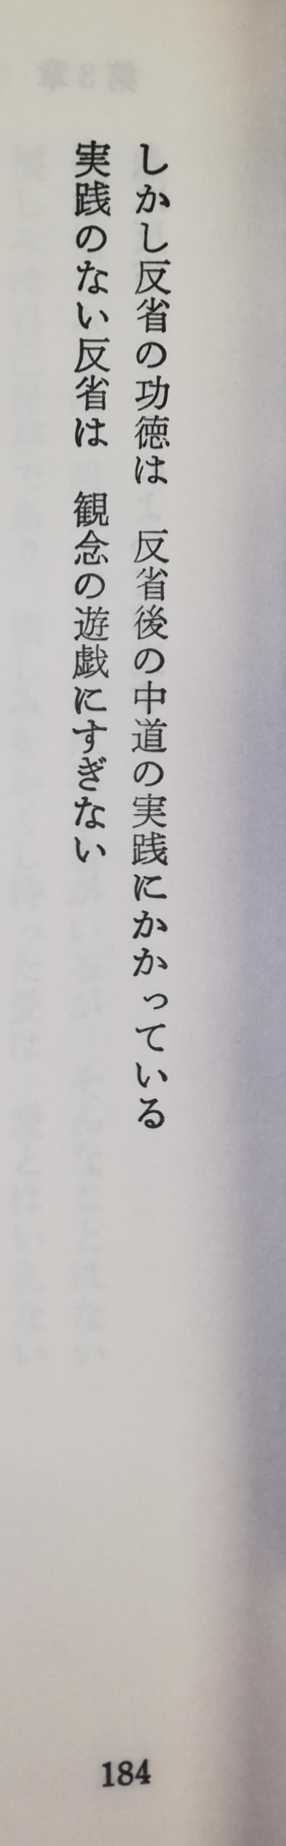 しかし反省の功徳は　反省後の中道の実践にかかっている
実践のない反省は　観念の遊戯にすぎない
184